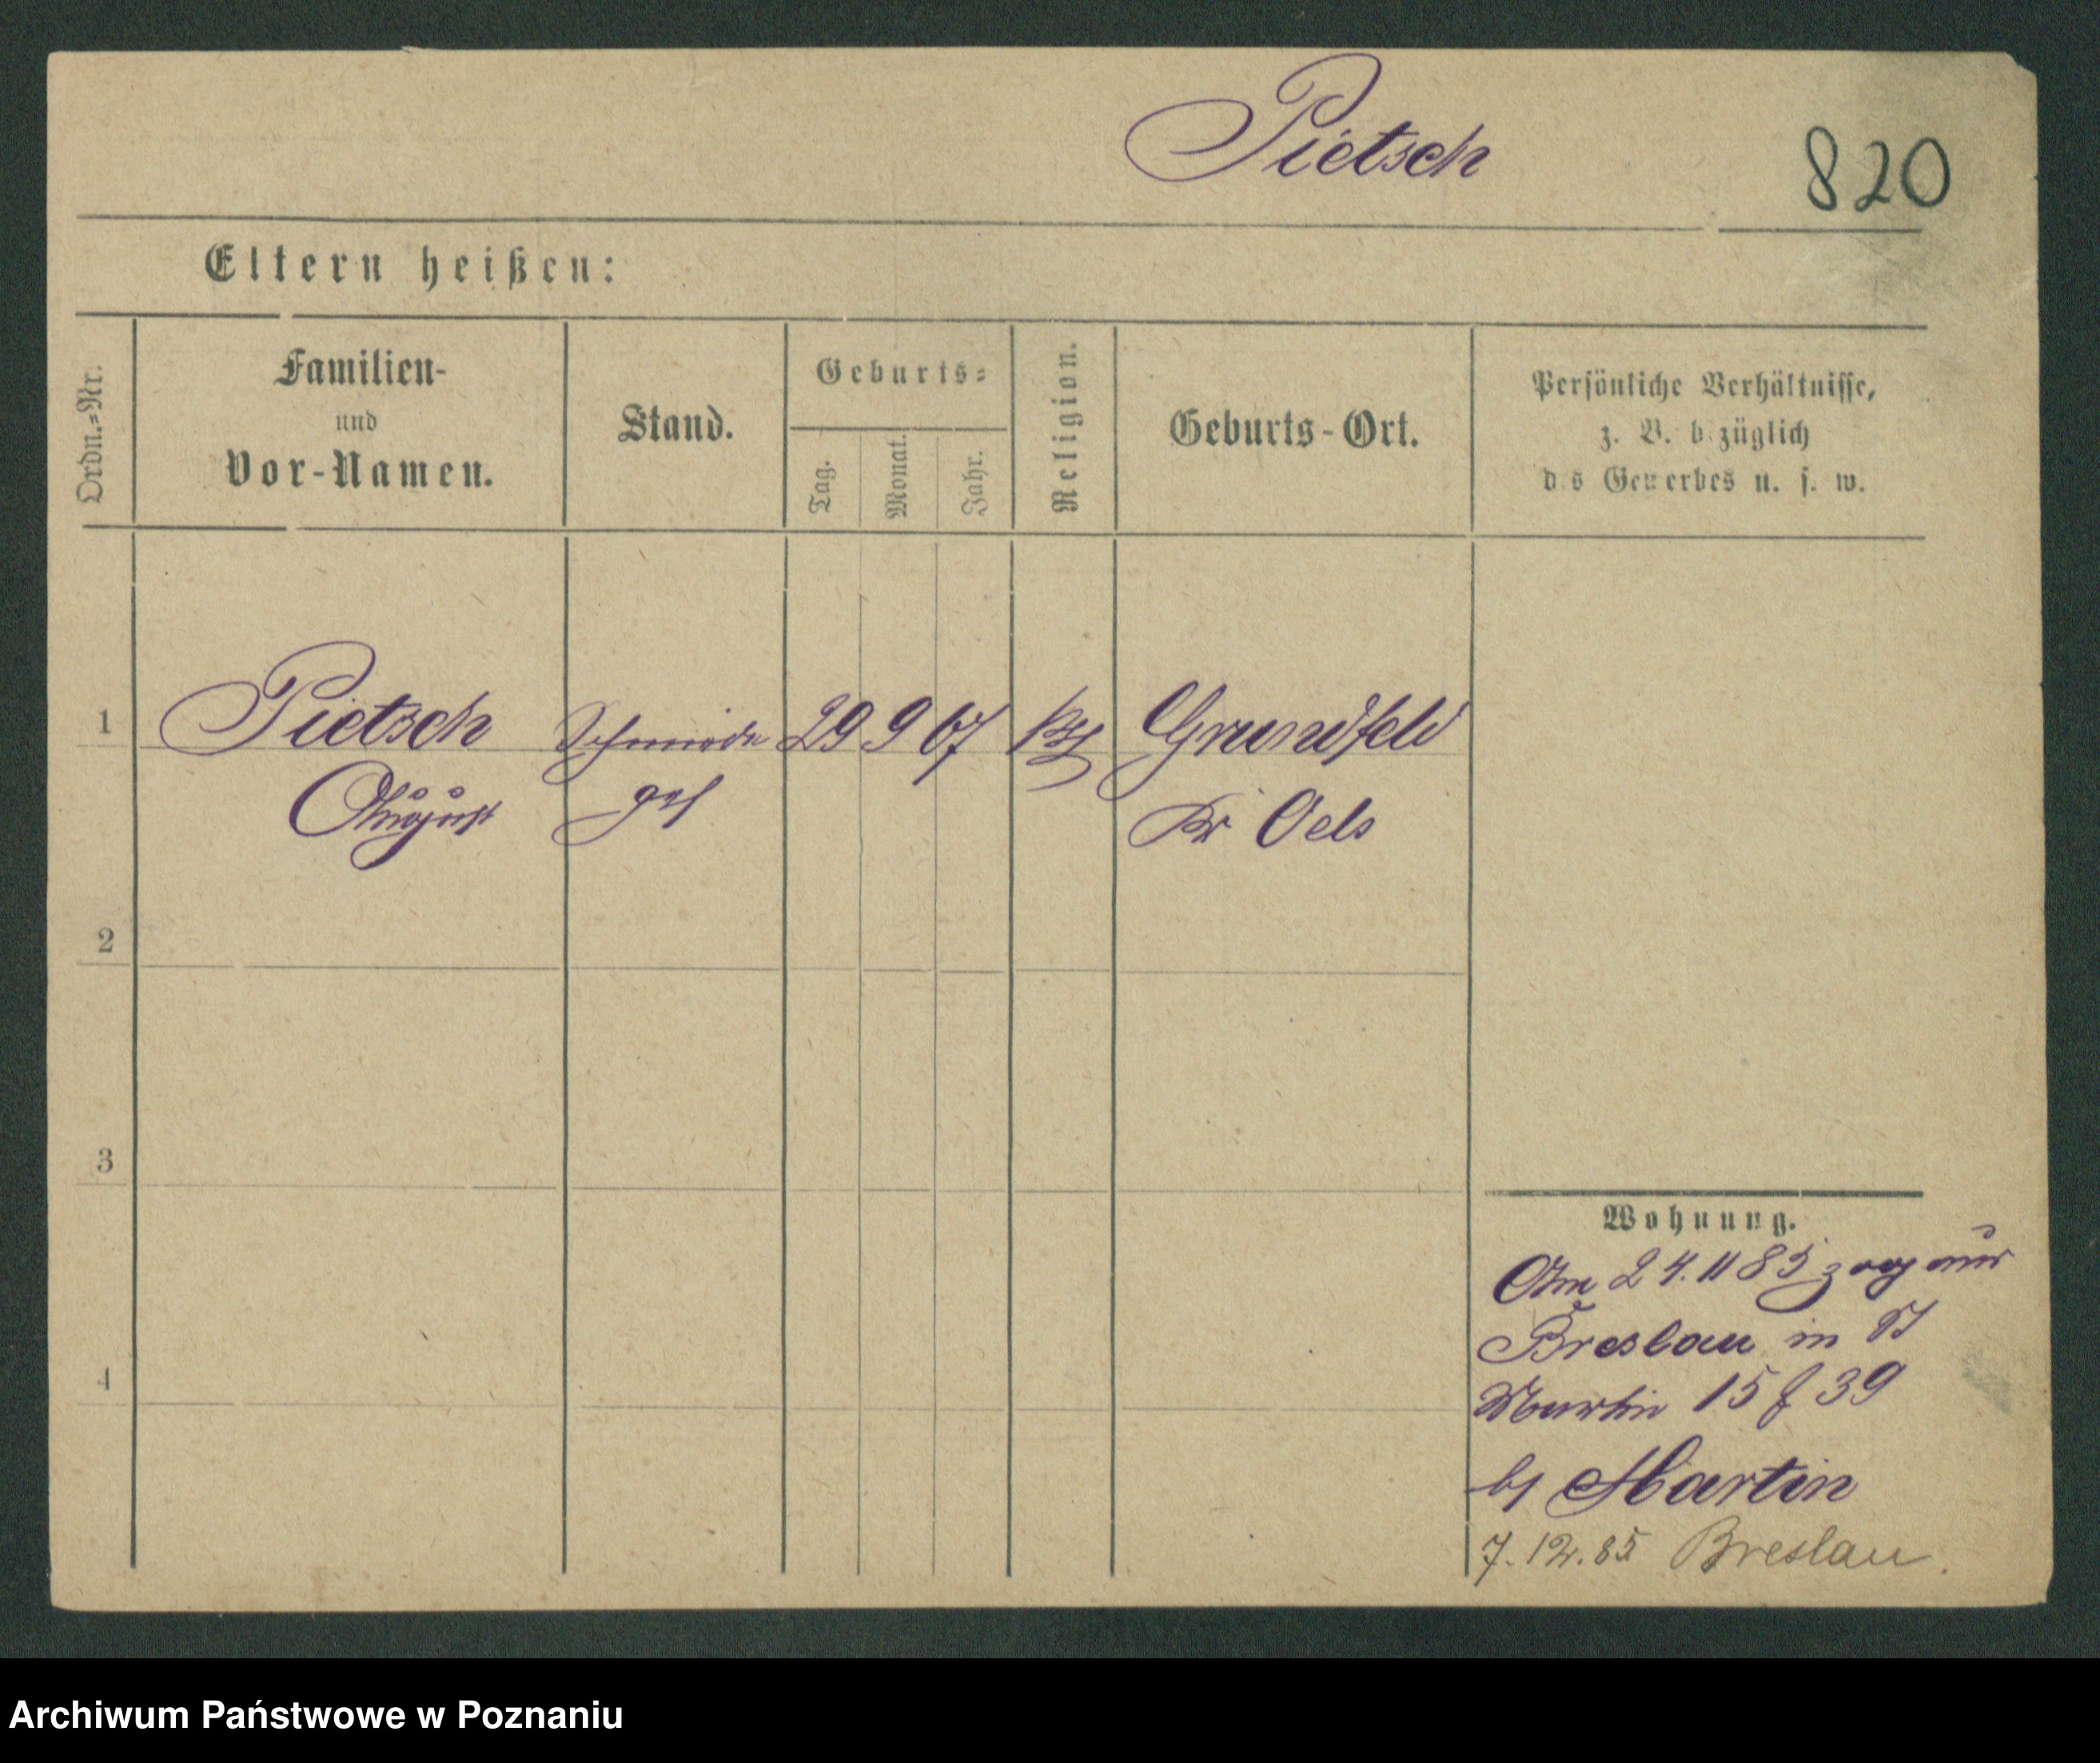 Pietsch
820
Eltern heißen:
Ordn.=Nr.
Familien-
und
Vor-Namen.
Stand.
Geburts=
Tag.
Monat.
Jahr.
Religion.
Geburts-Ort.
Persönliche Verhältnisse,
z. B. bezüglich
des Gewerbes u. s. w.
1 Pietsch Schmiede 29 9 67 Grundfeld
August ges Kr Oels
2
3
4
Wohnung.
Am 24.11 85 zog aus
Breslau in St
Martin 15 f 39
bs Martin
7.12.85 Breslau.
Archiwum Państwowe w Poznaniu